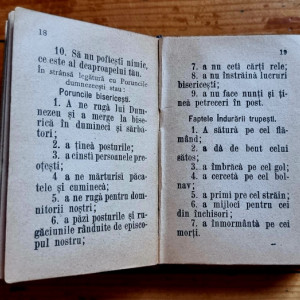 18
10. Să nu poftești nimic,
ce este al deaproapelui tău.
In strânsă legătură cu Poruncile
dumnezeești stau:
Poruncile bisericești.
1. A ne rugà lui Dum-
nezeu și a merge la bise-
rică în dumineci și sărbă-
tori;
2. a ținea posturile;
3. a cinsti persoanele pre-
oțești;
4. a ne mărturisi păca-
tele și cuminecă;
5. a ne rugà pentru dom-
nitorii noștri;
6. a păzi posturile și ru-
găciunile rânduite de episco-
pul nostru;
19
7. a nu ceti cărți rele;
8. a nu înstrăina lucruri
bisericești;
9. a nu face nunți și ți-
neà petreceri în post.
Faptele Îndurării trupești.
1. A sătura pe cel flă-
mând;
2. a dà de bent celui
sătos;
3. a îmbrăcà pe cel gol;
4. a cercetà pe cel bol-
nav;
5. a primi pe cel străin;
6. a mijloci pentru cei
din închisori;
7. a înmormântà pe cei
morți.